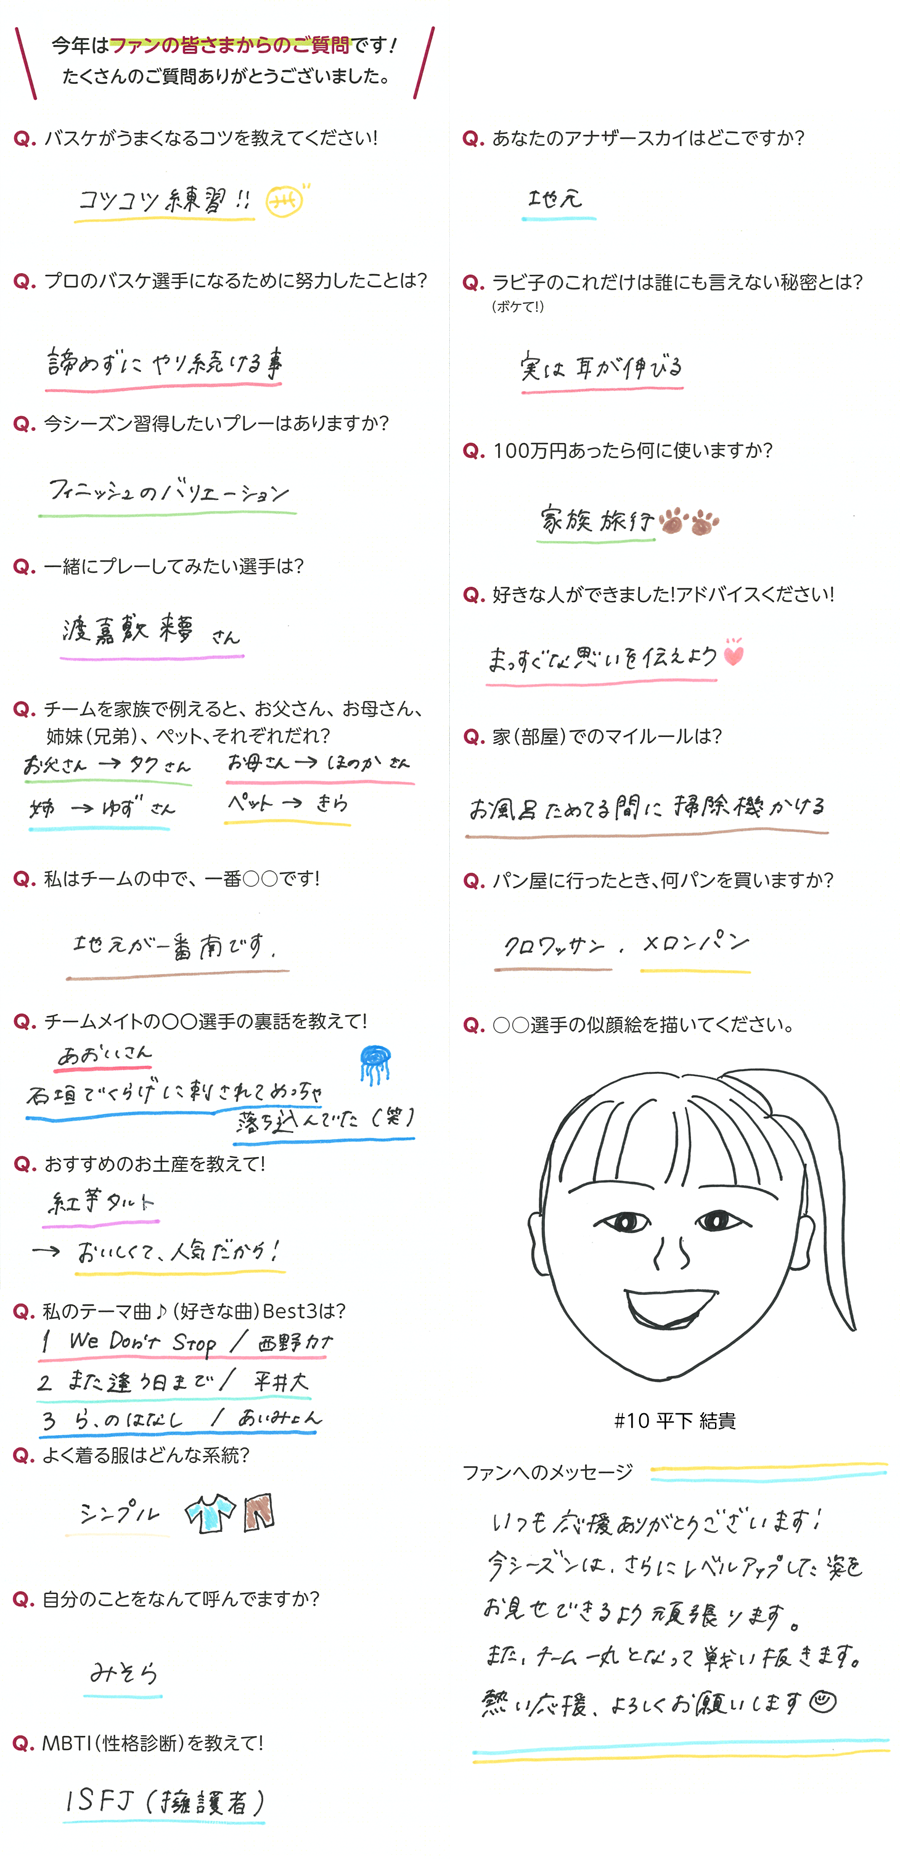 今年はファンの皆さまからのご質問です!
たくさんのご質問ありがとうございました。
Q. バスケがうまくなるコツを教えてください!
コツコツ練習!!
Q. プロのバスケ選手になるために努力したことは?
諦めずにやり続ける事
Q. 今シーズン習得したいプレーはありますか?
フィニッシュのバリエーション
Q. 一緒にプレーしてみたい選手は?
渡嘉敷 来夢 さん
Q. チームを家族で例えると、お父さん、お母さん、
姉妹(兄弟)、ペット、それぞれだれ?
お父さん → タクさん
お母さん → ほのかさん
姉 → ゆずさん
ペット → きら
Q. 私はチームの中で、一番○○です!
地元が一番南です.
Q. チームメイトの○○選手の裏話を教えて!
あおいさん
石垣でくらげに刺されてめっちゃ
落ち込んでた(笑)
Q. おすすめのお土産を教えて!
紅芋タルト
→ おいしくて、人気だから!
Q. 私のテーマ曲♪(好きな曲)Best3は?
1 We Don't Stop / 西野カナ
2 また逢う日まで / 平井大
3 ら、のはなし / あいみょん
Q. よく着る服はどんな系統?
シンプル
Q. 自分のことをなんて呼んでますか?
みそら
Q. MBTI(性格診断)を教えて!
ISFJ(擁護者)
Q. あなたのアナザースカイはどこですか?
地元
Q. ラビ子のこれだけは誰にも言えない秘密とは?
(ボケて!)
実は耳が伸びる
Q. 100万円あったら何に使いますか?
家族旅行
Q. 好きな人ができました!アドバイスください!
まっすぐな思いを伝えよう
Q. 家(部屋)でのマイルールは?
お風呂ためてる間に掃除機かける
Q. パン屋に行ったとき、何パンを買いますか?
クロワッサン . メロンパン
Q. ○○選手の似顔絵を描いてください。
#10 平下 結貴
ファンへのメッセージ
いつも応援ありがとうございます!
今シーズンは、さらにレベルアップした姿を
お見せできるよう頑張ります。
また、チーム一丸となって戦い抜きます。
熱い応援、よろしくお願いします